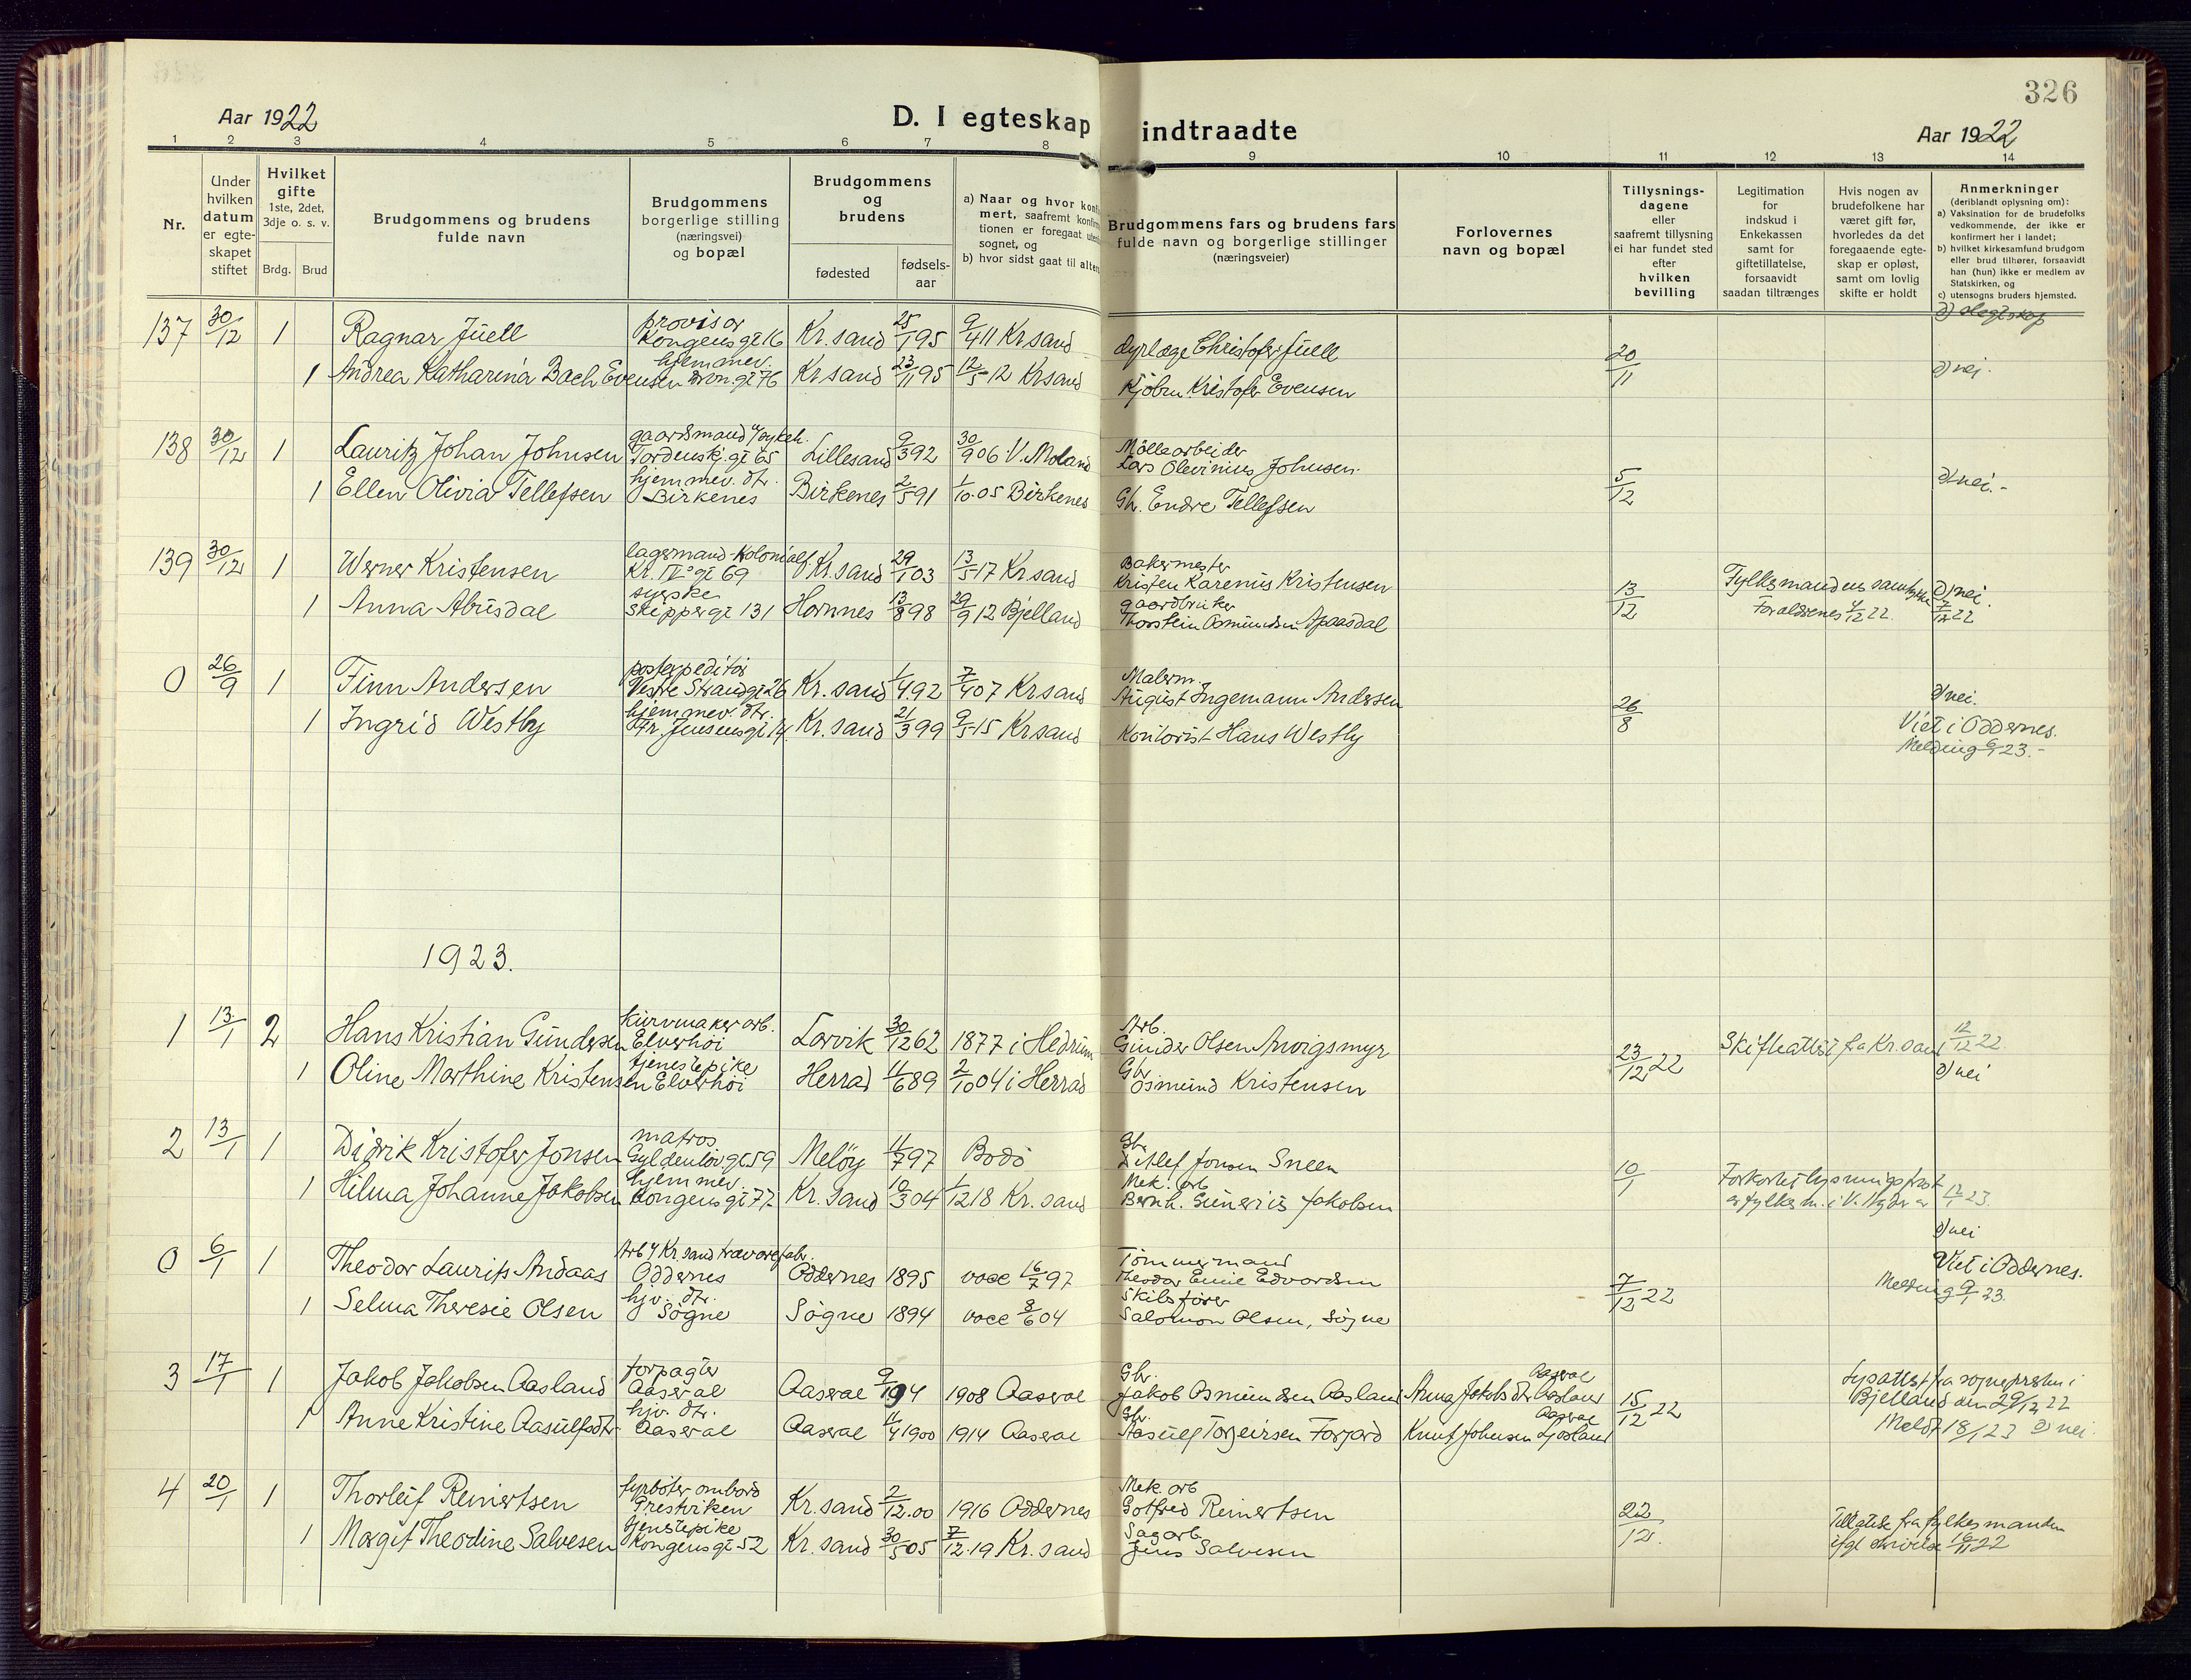 326
Aar 1922
D. I egteskap indtraadte
Aar 1922
1 2 3 4 5 6 7 8 9 10 11 12 13 14
Nr.
Under hvilken datum er egteskapet stiftet
Hvilket gifte 1ste, 2det, 3dje o. s. v.
Brdg. Brud
Brudgommens og brudens fulde navn
Brudgommens borgerlige stilling (næringsvei) og bopæl
Brudgommens og brudens
fødested
fødselsaar
a) Naar og hvor konfirmert, saafremt konfirmationen er foregaat utenfor sognet, og
b) hvor sidst gaat til alters
Brudgommens fars og brudens fars fulde navn og borgerlige stillinger (næringsveier)
Forlovernes navn og bopæl
Tillysningsdagene eller saafremt tillysning ei har fundet sted efter hvilken bevilling
Legitimation for indskud i Enkekassen samt for giftetillatelse, forsaavidt saadan tiltrænges
Hvis nogen av brudefolkene har været gift før, hvorledes da det foregaaende egteskap er opløst, samt om lovlig skifte er holdt
Anmerkninger (deriblandt oplysning om):
a) Vaksination for de brudefolks vedkommende, der ikke er konfirmert her i landet;
b) hvilket kirkesamfund brudgom eller brud tilhører, forsaavidt han (hun) ikke er medlem av Statskirken, og
c) utensogns bruders hjemsted.
d) slegtskap
137 30/12 1 Ragnar Juell provisor Kongensgt 16 Kr.sand 25/1 95 9/4 11 Kr sand dyrlæge Christofer Juell 20/11
1 Andrea Katharina Bach Evensen hjemmev. Dron.gt 76 Kr sand 23/11 95 12/5 12 Kr sand Kjøbm Kristofer Evensen d) nei.
138 30/12 1 Lauritz Johan Johnsen gaardsmand Tordenskj.gt 65 Lillesand 9/3 92 30/9 06 V. Moland Møllearbeider Lars Olevinius Johnsen. 5/12
1 Ellen Olivia Tellefsen hjemmev. dtr. Birkenes Birkenes 2/5 91 1/10 05 Birkenes Gbr. Endre Tellefsen d) nei.-
139 30/12 1 Werner Kristensen lagermand Kolonial Kr. IV's gt 69 Kr. sand 29/1 03 13/5 17 Kr sand Bakermester Kristen Karenius Kristensen 13/12 Fylkesmandens samtykke 7/12 22 d) nei.
1 Anna Abusdal syerske Skippergt 131 Hornnes 13/8 98 29/9 12 Bjelland gaardbruker Thorstein Osmundsen Forældrenes 4/12 22.
0 26/9 1 Finn Andersen postexpeditør Vestre Strandgt 26 Kr. sand 1/4 92 7/4 07 Kr sand Malerm. August Ingemann Andersen 26/8 d) nei.
1 Ingrid Westby hjemmev. dtr. Fr. Jensensgt 14 Kr. sand 21/3 99 9/5 15 Kr sand Kontorist Hans Westby Viet i Oddernes. Melding 6/1 23.-
1923.
1 13/1 2 Hans Kristian Gundersen Kurvmaker arb. Elverhøi Larvik 30/12 62 1877 i Hedrum Arb. Gunder Olsen 23/12 22 Skifteattest fra Kr. sand 12/12 22.
1 Oline Marthine Kristensen tjenestepike Elverhøi Herrad 11/6 89 2/10 04 i Herrad Gbr Osmund Kristensen d) nei
2 13/1 1 Didrik Kristofer Jonsen matros Gyldenløv.gt 59 Meløy 11/7 97 Bodø Gbr. Ditlef Jonsen Sneen 10/1
1 Hilma Johanne Jakobsen hjemmev. Kongensgt 77 Kr. sand 10/3 04 1/12 18 Kr. sand Mek. arb Bernh. Gunerius Jakobsen Forkortet lysningsfrist av fylkesm. i V. Agder 12/1 23. d) nei
0 6/1 1 Theodor Laurits Andaas Arb v/ Kr.sand trævarefabr. Oddernes Oddernes 1895 vacc 16/7 97 Tømmermand Theodor Emil Edvardsen 7/12 22 Viet i Oddernes. Melding 9/1 23.
1 Selma Theresie Olsen hjv. dtr. Søgne Søgne 1894 vacc 8/6 04 Skibsfører Salomon Olsen, Søgne
3 17/1 1 Jakob Jakobsen Aasland forpagter Aaseral Aaseral 9/1 94 1908 Aaseral Gbr. Jakob Osmundsen Aasland Anna Jakobsdtr Aasland Aaseral 15/12 22 Lysattest fra sognepresten i Bjelland den 29/12 22
1 Anne Kristine Aasulfsdtr hjv. dtr. Aaseral Aaseral 11/4 1900 1914 Aaseral Gbr. Aasulf Torjeirsen Forgard Knut Johnsen Ljosland Aaseral Meldt 18/1 23 d) nei
4 20/1 1 Thorleif Reinertsen fyrbøter ombord Kr. sand 2/12.00 1916 Oddernes Mek. arb Gotfred Reinertsen 22/12.
1 Margit Theodine Salvesen tjenstepike Kongensgt 52 Kr. sand 30/5 05 7/12.19 Kr. sand Sagarb Jens Salvesen Tillatelse fra fylkesmanden ifgl skrivelse 16/11 22